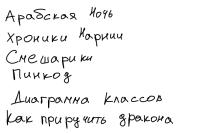 Арабская Ночь
Хроники Нарнии
Смешарики
Пинкод
Диаграмма классов
Как приручить дракона